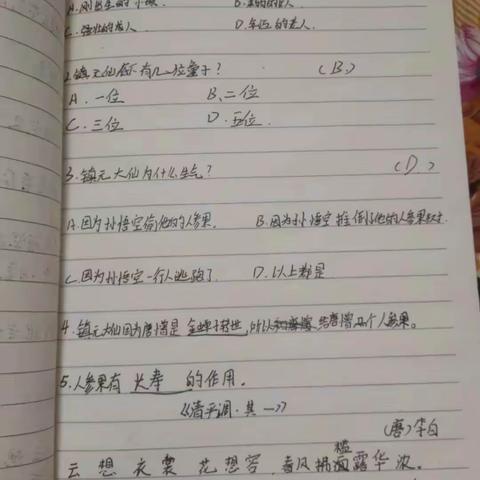 A.刚出生的小孩 B.
C.强壮的成人 D.年迈的老人
2.镇元大仙有几位童子? (B)
A.一位 B.二位
C.三位 D.五位.
3.镇元大仙为什么生气? (D)
A.因为孙悟空偷他的人参果. B.因为孙悟空推倒了他的人参果树.
C.因为孙悟空一行人逃跑了. D.以上都是
4.镇元大仙因为唐僧是金蝉子转世,所以给唐僧几个人参果。
5.人参果有长寿的作用。
《清平调·其一》
(唐)李白
云想衣裳花想容,春风拂槛露华浓。